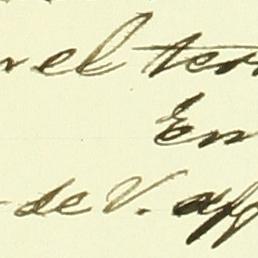 el ter
En
de V. aff